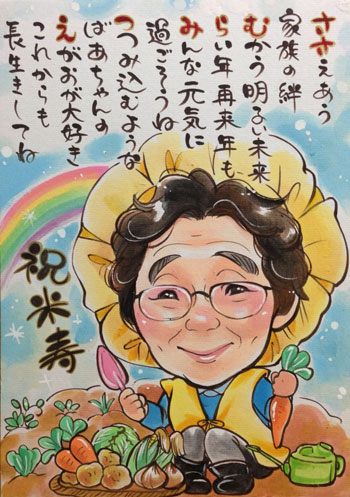 ささえあう
家族の絆
むかう明るい未来
らい年再来年も
みんな元気に
過ごそうね
つつみ込むような
ばあちゃんの
えがおが大好き
これからも
長生きしてね
祝米寿